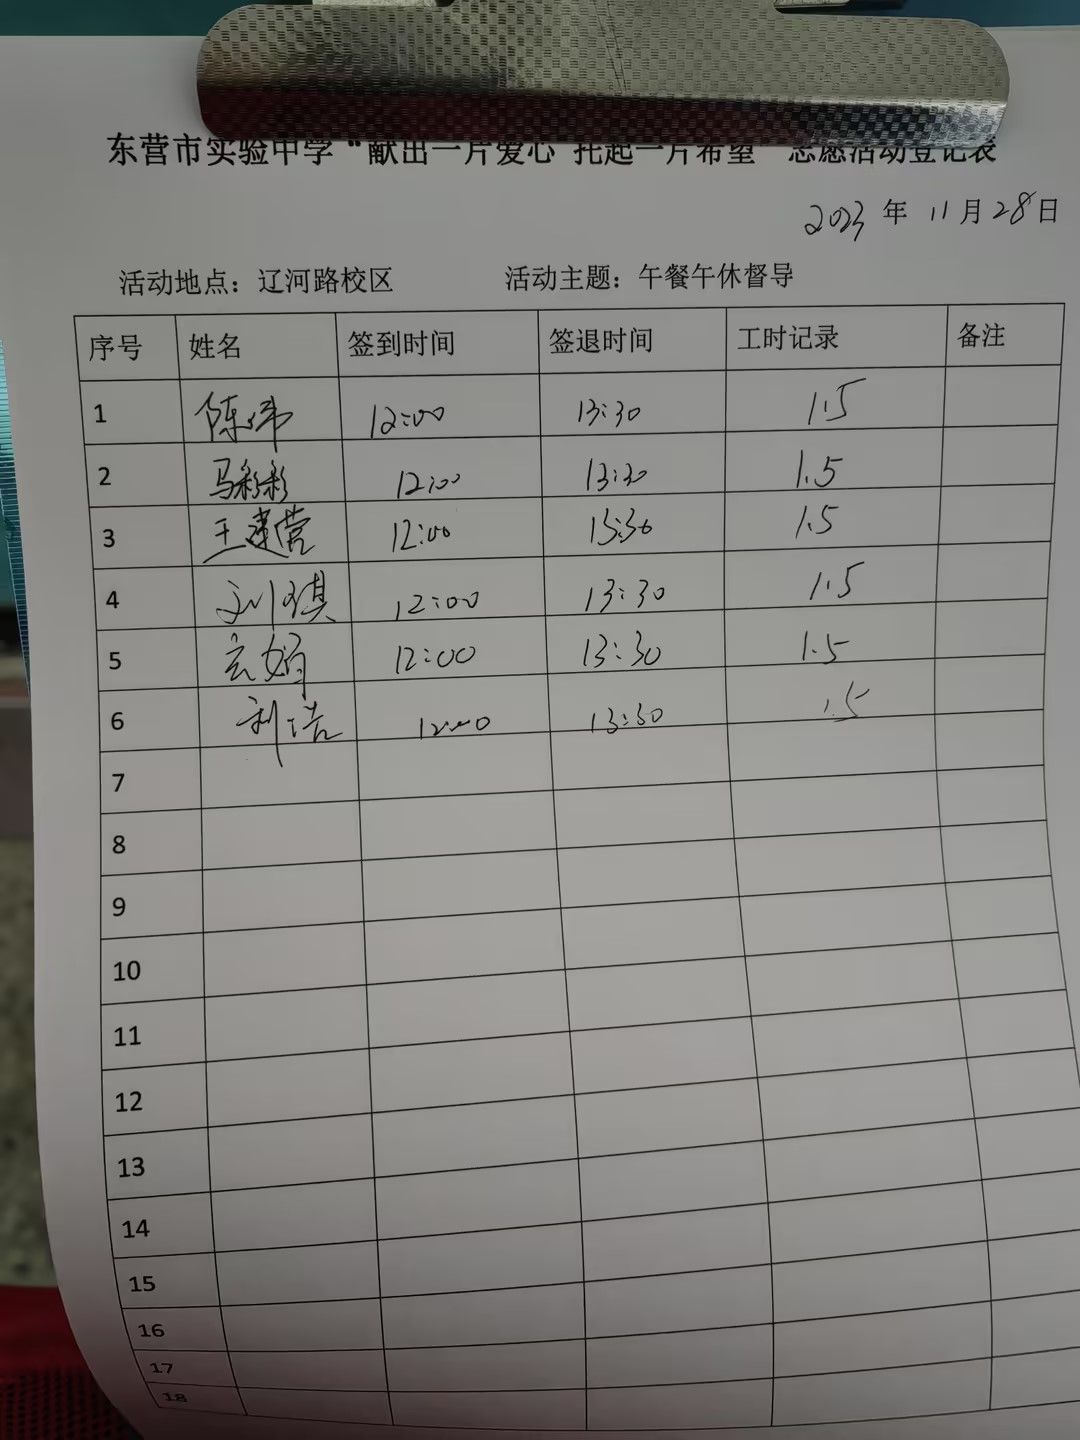 东营市实验中学“献出一片爱心 托起一片希望”志愿活动登记表
2023 年 11 月 28 日
活动地点：辽河路校区 活动主题：午餐午休督导
序号 姓名 签到时间 签退时间 工时记录 备注
1 陈 12:00 13:30 1.5
2 马彩彩 12:00 13:30 1.5
3 王建营 12:00 13:30 1.5
4 刘琪 12:00 13:30 1.5
5 玄娟 12:00 13:30 1.5
6 刘浩 12:00 13:30 1.5
7
8
9
10
11
12
13
14
15
16
17
18